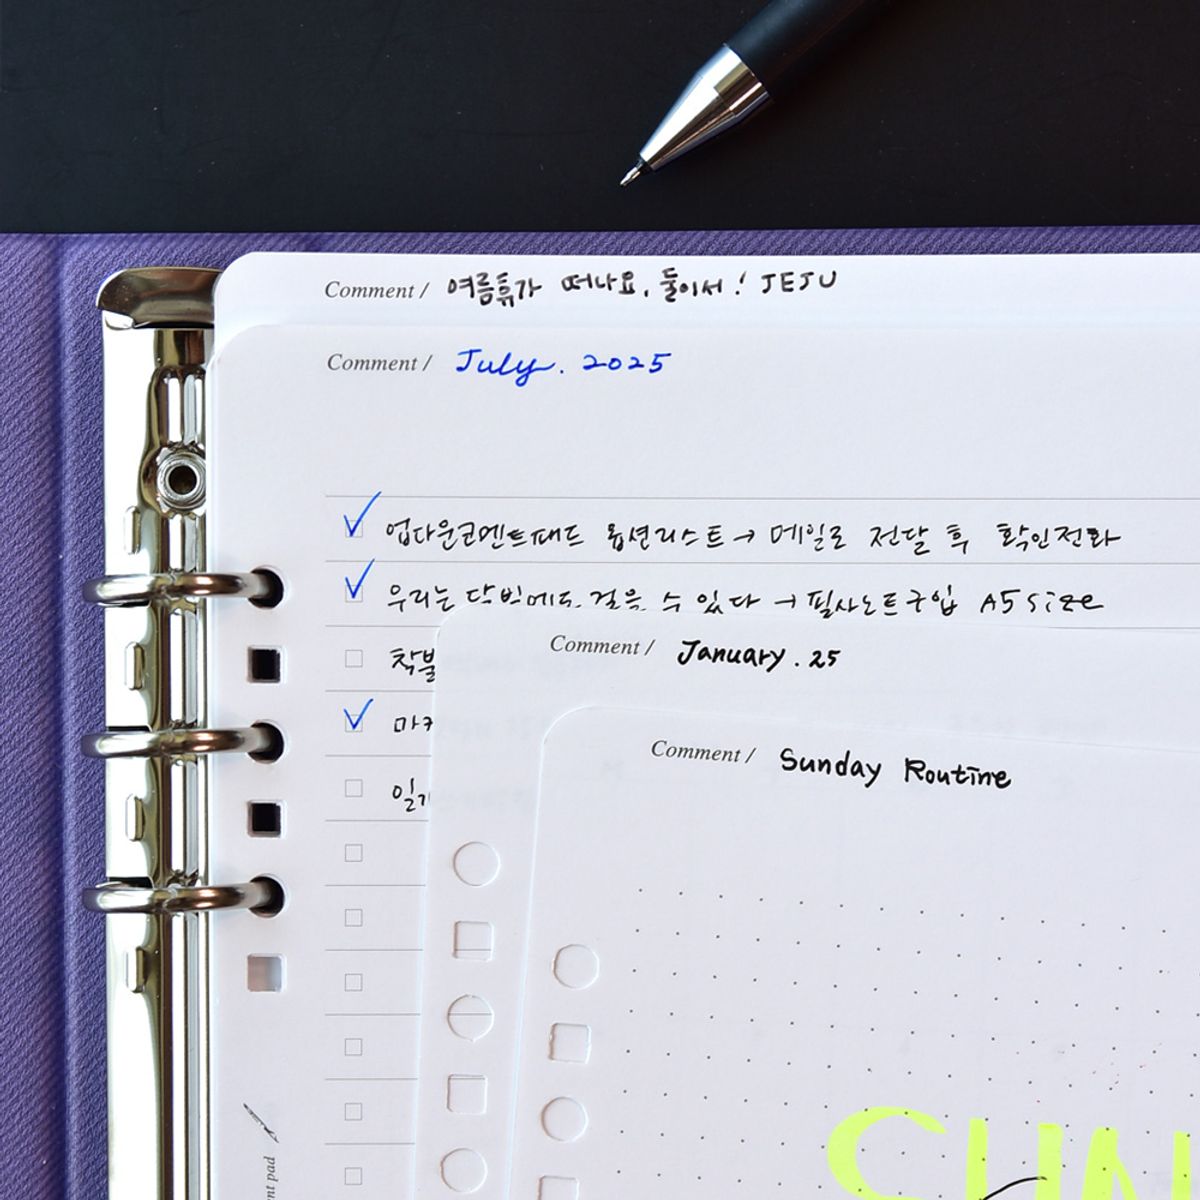 Comment / 여름휴가 떠나요, 둘이서! JEJU
Comment / July. 2025
업다운코멘트패드 옵션리스트 → 메일로 전달 후 확인전화
우리는 달빛에도 걸을 수 있다 → 필사노트구입 A5 size
착불
마
일
Comment / January. 25
Comment / Sunday Routine
SUN
nt pad